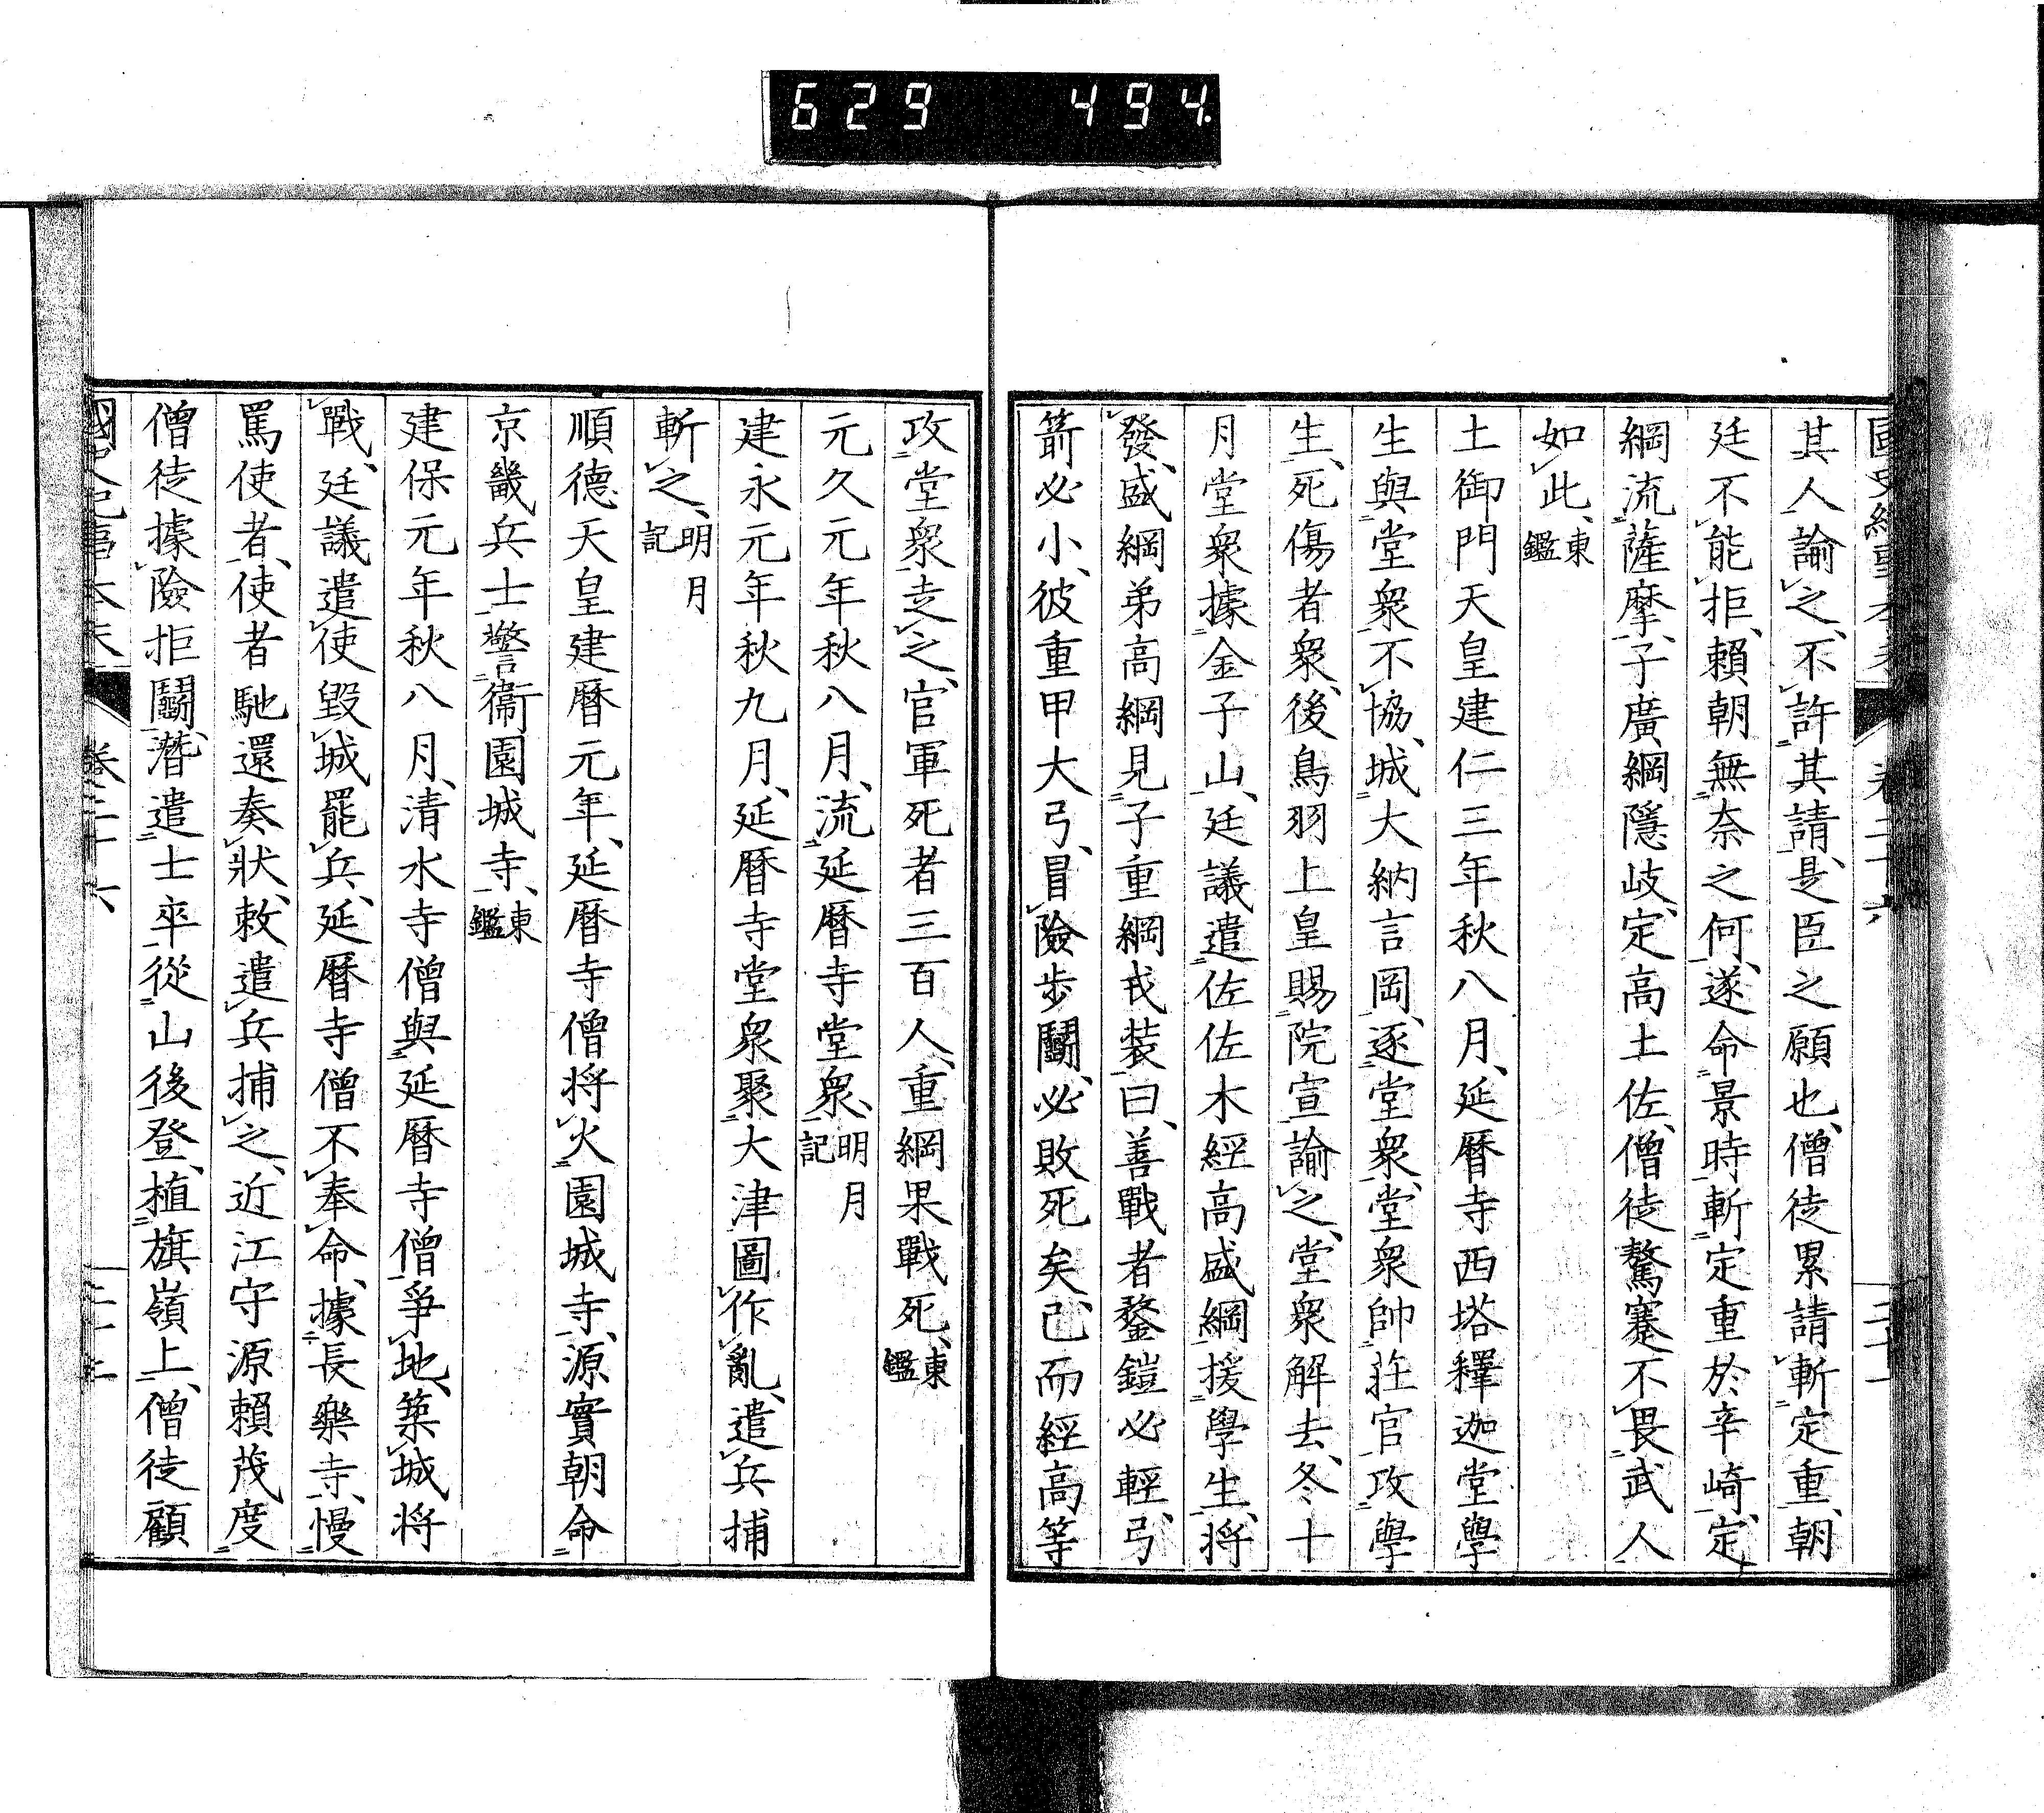 629 494.
其人諭之、不許其請、是臣之願也、僧徒累請斬定重、朝
廷不能拒、賴朝無奈之何、遂命景時斬定重於辛崎、定
綱流薩摩、子廣綱隱岐、定高土佐、僧徒驁蹇不畏武人
如此、東鑑
土御門天皇建仁三年秋八月、延曆寺西塔釋迦堂學
生與堂衆不協、城大納言岡、逐堂衆、堂衆帥莊官攻學
生、死傷者衆、後鳥羽上皇賜院宣諭之、堂衆解去、冬十
月堂衆據金子山、廷議遣佐佐木經高盛綱援學生、將
發、盛綱弟高綱見子重綱戎裝曰、善戰者鍪鎧必輕、弓
箭必小、彼重甲大弓、冒險步鬪、必敗死矣、已而經高等
攻堂衆走之、官軍死者三百人、重綱果戰死、東鑑
元久元年秋八月、流延曆寺堂衆、明月記
建永元年秋九月、延曆寺堂衆聚大津圖作亂、遣兵捕
斬之、明月記
順德天皇建曆元年、延曆寺僧將火園城寺、源實朝命
京畿兵士警衞園城寺、東鑑
建保元年秋八月、清水寺僧與延曆寺僧爭地、築城將
戰、廷議遣使毀城罷兵、延曆寺僧不奉命、據長樂寺、慢
罵使者、使者馳還奏狀、敕遣兵捕之、近江守源賴茂度
僧徒據險拒鬪、潛遣士卒從山後登、植旗嶺上、僧徒顧
國史紀事本末 卷二十六